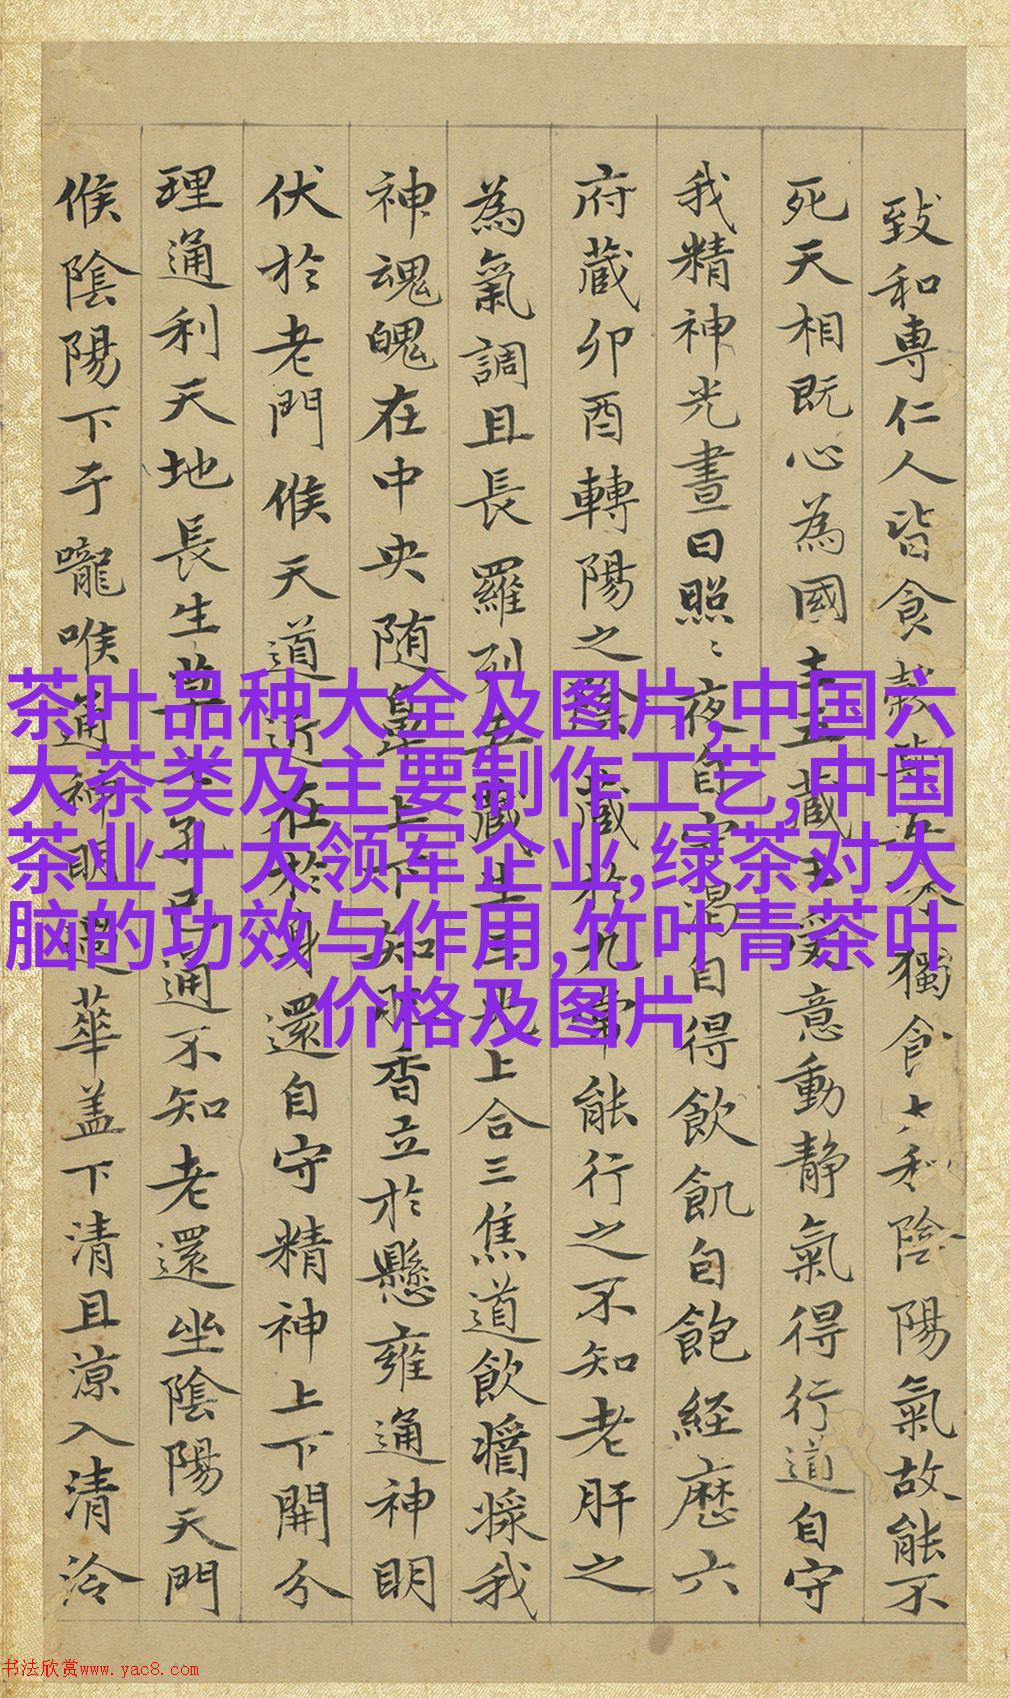 致和專仁人皆食穀與五味獨食大和陰陽氣故能不
死天相既心為國主五藏王受意動静氣得行道自守
我精神光晝日照〻夜自守渴自得飲飢自飽經歷六
府藏卯酉轉陽之陰藏於九常能行之不知老肝之
為氣調且長羅列五藏生三光上合三焦道飲醬漿我
神魂魄在中央随鼻上下知肥香立於懸雍通神明
伏於老門候天道近在於身還自守精神上下開分
理通利天地長生草七孔已通不知老還坐陰陽天門
候陰陽下于嚨喉通神明過華盖下清且凉入清泠
茶叶品种大全及图片,中国六
大茶类及主要制作工艺,中国
茶业十大领军企业,绿茶对大
脑的功效与作用,竹叶青茶叶
价格及图片
书法欣赏www.yac8.com